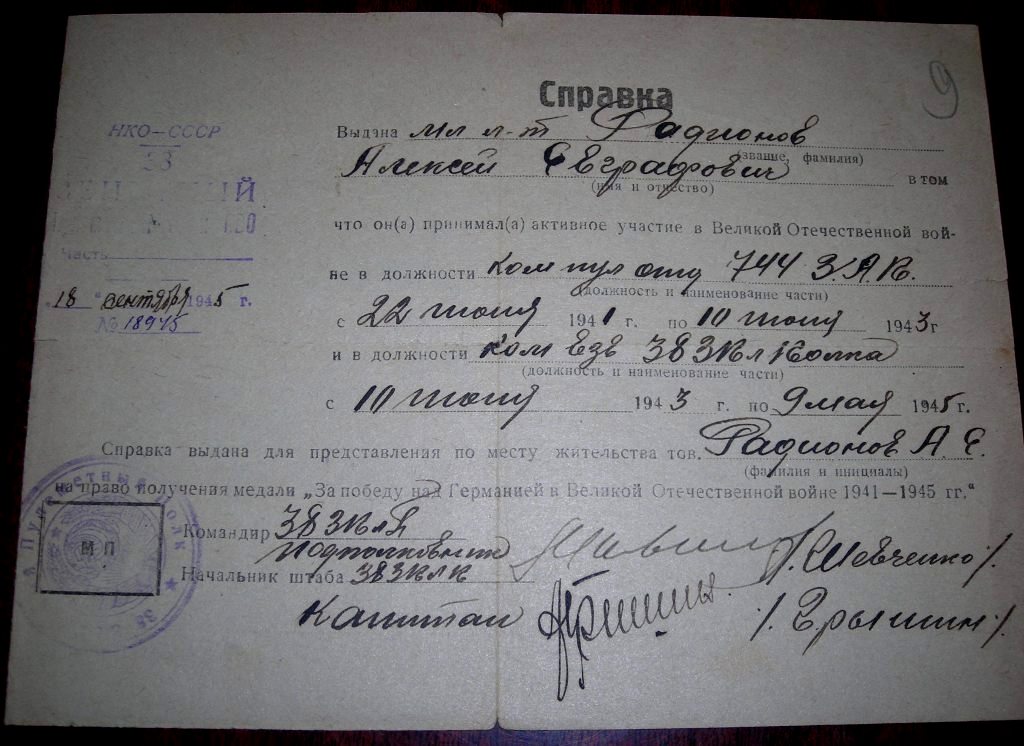 9
Справка
НКО-СССР
38
Выдана мл л-т Радионов
(звание, фамилия)
Алексей Евграфович в том
(имя и отчество)
что он(а) принимал(а) активное участие в Великой Отечественной вой-
Часть
не в должности ком пул отд 744 З.А.П.
(должность и наименование части)
„18 " сентября 1945 г.
№ 18945
с 22 июня 1941 г. по 10 июня 1943 г
и в должности ком взв 38 Полка
(должность и наименование части)
с 10 июня 1943 г. по 9 мая 1945 г.
Справка выдана для представления по месту жительства тов. Радионов А. Е.
(фамилия и инициалы)
на право получения медали „За победу над Германией в Великой Отечественной войне 1941—1945 гг."
МП
Командир 38
Подполковник /Шевченко/.
Начальник штаба 38
Капитан /. Ерышин /.